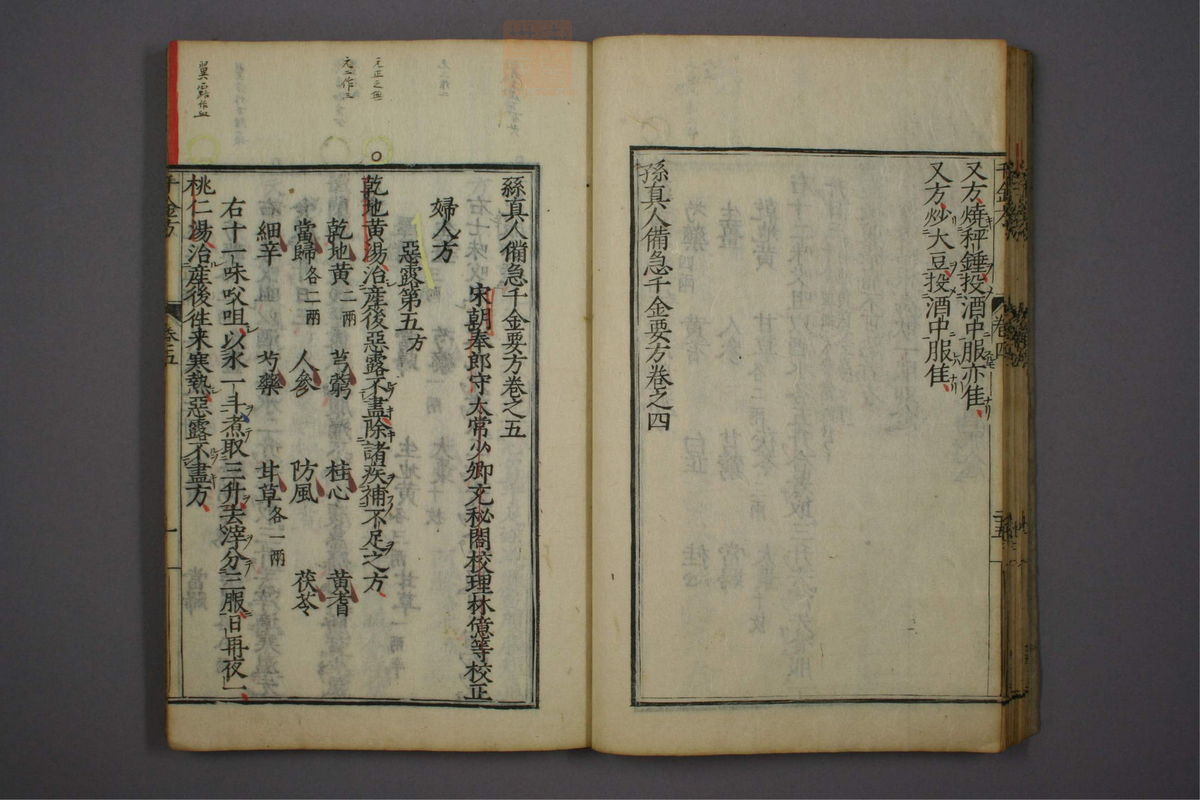 又方燒秤錘投酒中服亦隹
又方炒大豆投酒中服隹
孫真人備急千金要方卷之四
卷四
孫真人備急千金要方卷之五
宋朝奉郎守太常少卿充秘閣校理林億等校正
婦人方
惡露第五方
乾地黃湯治產後惡露不盡除諸疾補不足之方
乾地黃二兩 芎藭 桂心 黃耆
當歸各二兩 人參 防風 茯苓
細辛 芍藥 甘草各一兩
右十一味㕮咀以水一斗煮取三升去滓分三服日再夜一
桃仁湯治產後徃来寒熱惡露不盡方
千金方 卷五 一
元二作三
翼露作血